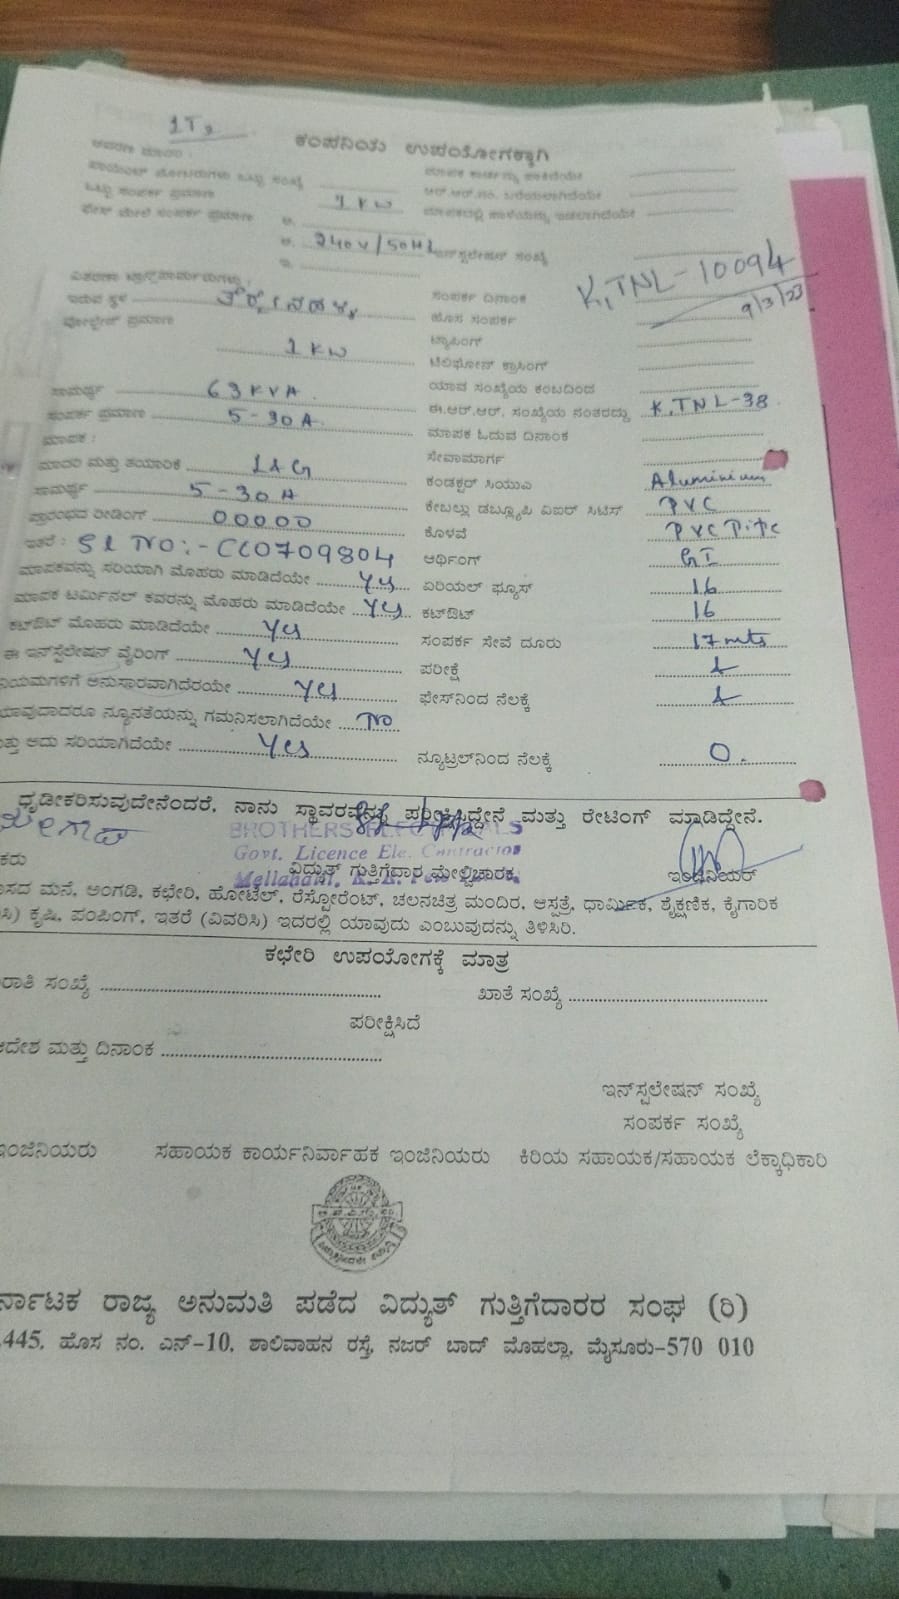 1T2
ಕಂಪನಿಯ ಉಪಯೋಗಕ್ಕಾಗಿ
ಒಟ್ಟು ಸಂಖ್ಯೆ
ಒಟ್ಟು ಸಂಪರ್ಕ ಪ್ರಮಾಣ 1 KW
ಸಂಪರ್ಕ ಪ್ರಮಾಣ ಅ.
ಆ. 240V/50HZ ಇನ್‌ಸ್ಟಲೇಷನ್ ಸಂಖ್ಯೆ K,TNL-10094
ಇ.
9/3/23
ಇರುವ ಸ್ಥಳ ಸಂಪರ್ಕ ದಿನಾಂಕ
ವೋಲ್ಟೇಜ್ ಪ್ರಮಾಣ ಹೊಸ ಸಂಪರ್ಕ
ಟ್ಯಾಪಿಂಗ್
1 KW ಟೆಲಿಫೋನ್ ಕ್ರಾಸಿಂಗ್
ಸಾಮರ್ಥ್ಯ 63 KVA ಯಾವ ಸಂಖ್ಯೆಯ ಕಂಬದಿಂದ
ಸಂಪರ್ಕ ಪ್ರಮಾಣ 5-30A ಈ.ಆರ್.ಆರ್. ಸಂಖ್ಯೆಯ ನಂತರದ್ದು K,TNL-38
ಮಾಪಕ : ಮಾಪಕ ಓದುವ ದಿನಾಂಕ
ಸೇವಾಮಾರ್ಗ
ಮಾದರಿ ಮತ್ತು ತಯಾರಿಕೆ L&G ಕಂಡಕ್ಟರ್ ಸಿಯುಎ Aluminium
ಸಾಮರ್ಥ್ಯ 5-30A ಕೇಬಲ್ಲು ಡಬ್ಲ್ಯೂಪಿ ವಿಐಆರ್ ಸಿಟಿಸ್ PVC
ಪ್ರಾರಂಭದ ರೀಡಿಂಗ್ 00000 ಕೊಳವೆ PVC Pipe
ಇತರೆ : Sl NO:- CC0709804 ಆರ್ಥಿಂಗ್ GI
ಮಾಪಕವನ್ನು ಸರಿಯಾಗಿ ಮೊಹರು ಮಾಡಿದೆಯೇ Yes ಏರಿಯಲ್ ಫ್ಯೂಸ್ 16
ಮಾಪಕ ಟರ್ಮಿನಲ್ ಕವರನ್ನು ಮೊಹರು ಮಾಡಿದೆಯೇ Yes ಕಟ್‌ಔಟ್ 16
ಕಟ್‌ಔಟ್ ಮೊಹರು ಮಾಡಿದೆಯೇ Yes ಸಂಪರ್ಕ ಸೇವೆ ದೂರು 17mts
ಈ ಇನ್‌ಸ್ಟಲೇಷನ್ ವೈರಿಂಗ್ Yes ಪರೀಕ್ಷೆ 1
ನಿಯಮಗಳಿಗೆ ಅನುಸಾರವಾಗಿದೆರಯೇ Yes ಫೇಸ್‌ನಿಂದ ನೆಲಕ್ಕೆ 1
ಯಾವುದಾದರೂ ನ್ಯೂನತೆಯನ್ನು ಗಮನಿಸಲಾಗಿದೆಯೇ No
ಮತ್ತು ಅದು ಸರಿಯಾಗಿದೆಯೇ Yes ನ್ಯೂಟ್ರಲ್‌ನಿಂದ ನೆಲಕ್ಕೆ 0.
ಧೃಡೀಕರಿಸುವುದೇನೆಂದರೆ, ನಾನು ಸ್ಥಾವರವನ್ನು ಪರಿಕ್ಷಿಸಿದ್ದೇನೆ ಮತ್ತು ರೇಟಿಂಗ್ ಮಾಡಿದ್ದೇನೆ.
BROTHERS ELECTRICALS
Govt. Licence Ele. Contractor
Mellahalli,
ಕರು ವಿದ್ಯುತ್ ಗುತ್ತಿಗೆದಾರ ಮೇಲ್ವಿಚಾರಕ ಇಂಜಿನಿಯರ್
ಸದ ಮನೆ, ಅಂಗಡಿ, ಕಛೇರಿ, ಹೋಟೆಲ್, ರೆಸ್ಟೋರೆಂಟ್, ಚಲನಚಿತ್ರ ಮಂದಿರ, ಆಸ್ಪತ್ರೆ, ಧಾರ್ಮಿಕ, ಶೈಕ್ಷಣಿಕ, ಕೈಗಾರಿಕ
ಸಿ) ಕೃಷಿ, ಪಂಪಿಂಗ್, ಇತರೆ (ವಿವರಿಸಿ) ಇದರಲ್ಲಿ ಯಾವುದು ಎಂಬುವುದನ್ನು ತಿಳಿಸಿರಿ.
ಕಛೇರಿ ಉಪಯೋಗಕ್ಕೆ ಮಾತ್ರ
ರಾತಿ ಸಂಖ್ಯೆ ಖಾತೆ ಸಂಖ್ಯೆ
ಪರೀಕ್ಷಿಸಿದೆ
ಆದೇಶ ಮತ್ತು ದಿನಾಂಕ
ಇನ್‌ಸ್ಪಲೇಷನ್ ಸಂಖ್ಯೆ
ಸಂಪರ್ಕ ಸಂಖ್ಯೆ
ಇಂಜಿನಿಯರು ಸಹಾಯಕ ಕಾರ್ಯನಿರ್ವಾಹಕ ಇಂಜಿನಿಯರು ಕಿರಿಯ ಸಹಾಯಕ/ಸಹಾಯಕ ಲೆಕ್ಕಾಧಿಕಾರಿ
ರ್ನಾಟಕ ರಾಜ್ಯ ಅನುಮತಿ ಪಡೆದ ವಿದ್ಯುತ್ ಗುತ್ತಿಗೆದಾರರ ಸಂಘ (ರಿ)
.445, ಹೊಸ ನಂ. ಎನ್-10, ಶಾಲಿವಾಹನ ರಸ್ತೆ, ನಜರ್ ಬಾದ್ ಮೊಹಲ್ಲಾ, ಮೈಸೂರು-570 010